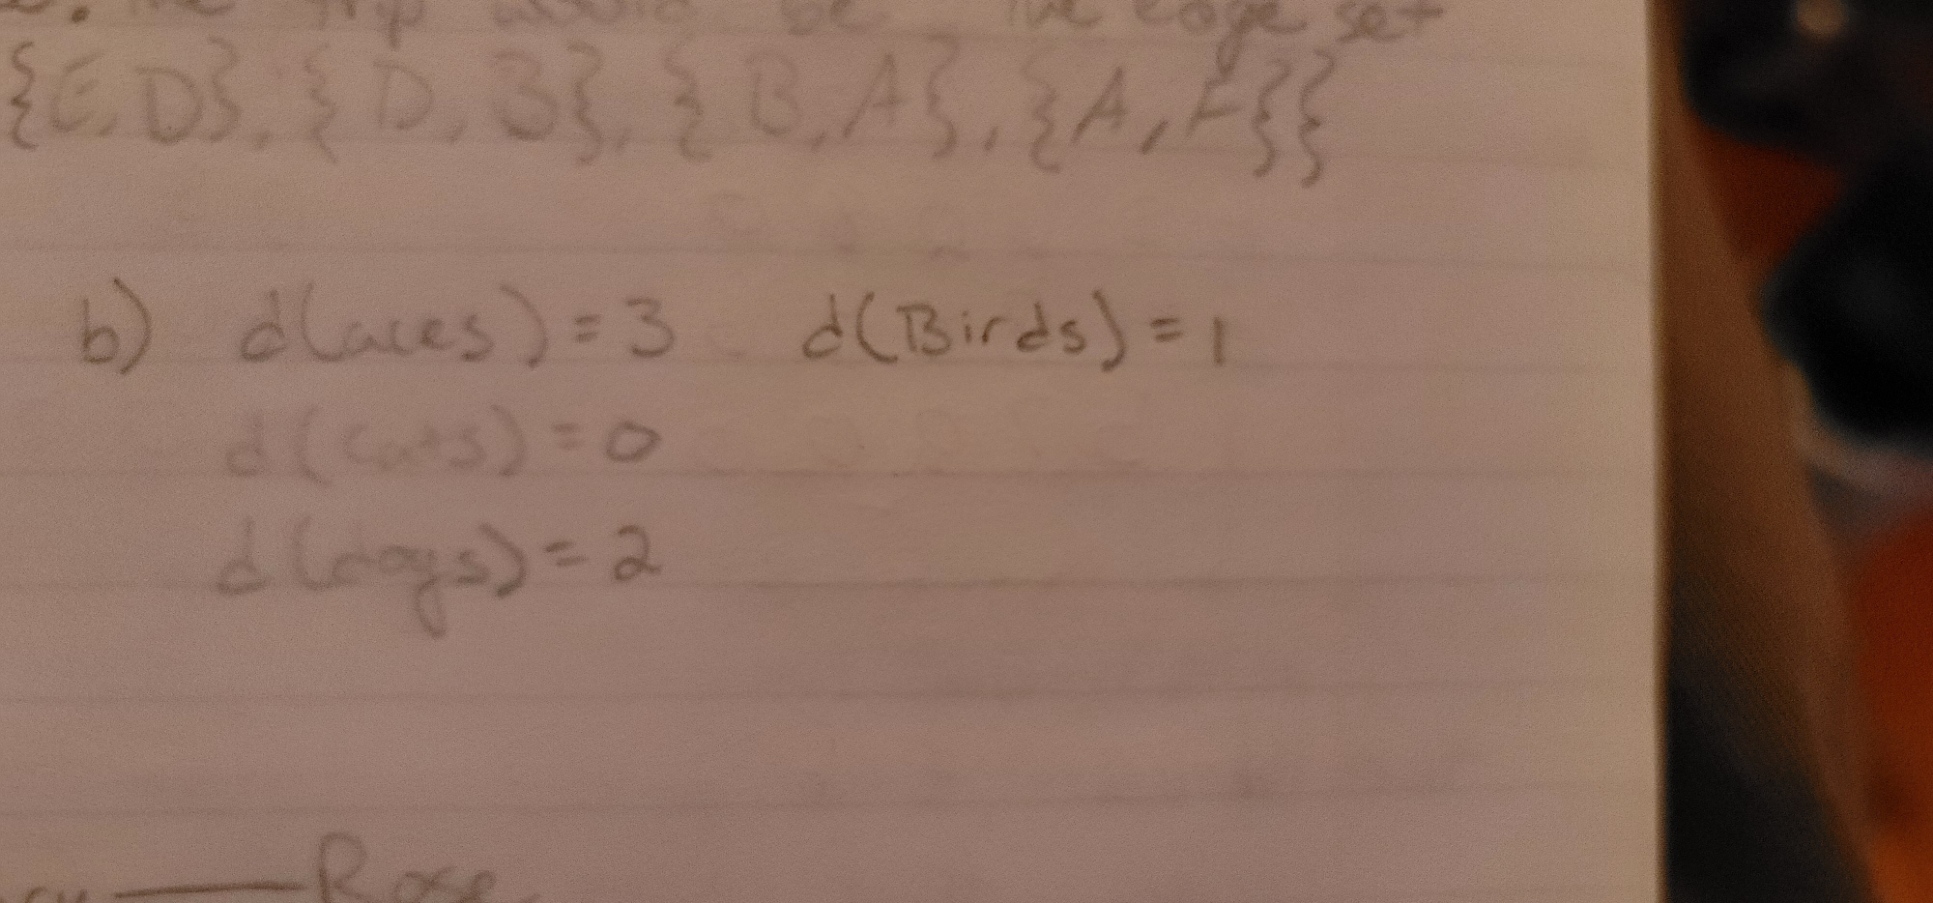 The trip would be the edge set
{E, D}, {D, B}, {B, A}, {A, F}}
b) d(aces) = 3 d(Birds) = 1
d(cats) = 0
d(dogs) = 2
Rose